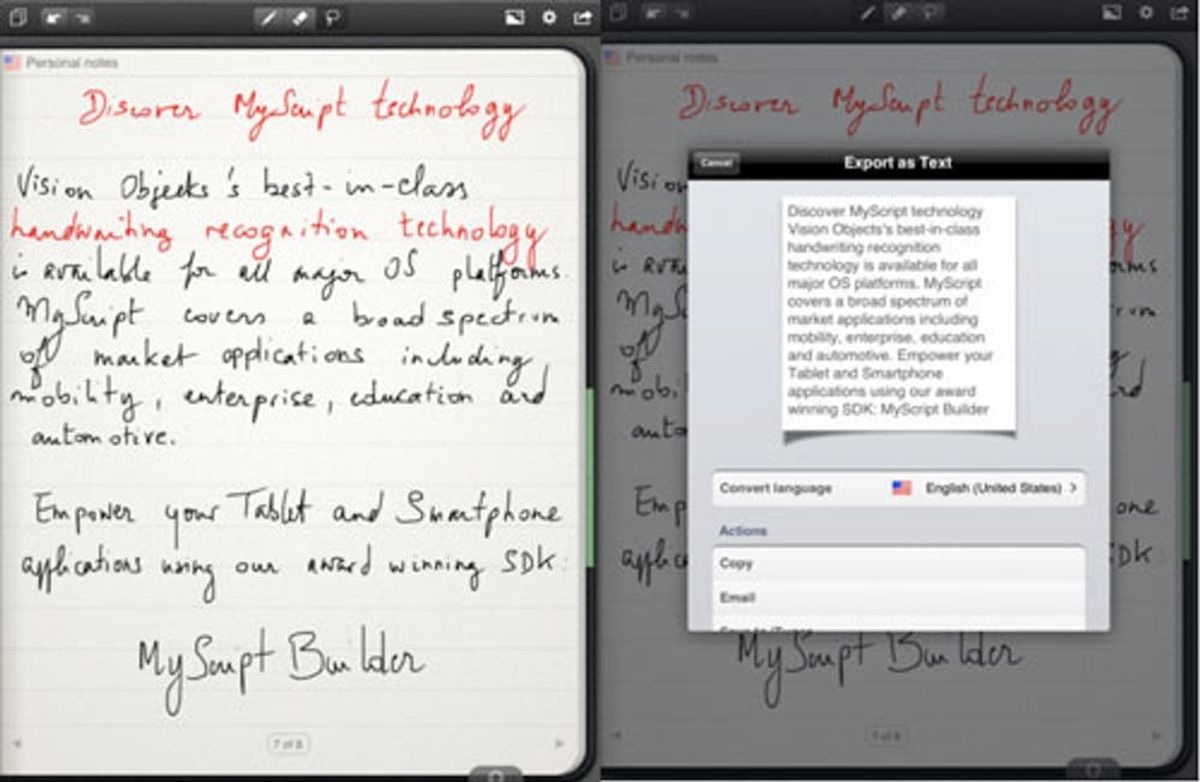 Personal notes
Discover MyScript technology
Vision Objects's best-in-class
handwriting recognition technology
is available for all major OS platforms.
MyScript covers a broad spectrum
of market applications including
mobility, enterprise, education and
automotive.
Empower your Tablet and Smartphone
applications using our award winning SDK:
MyScript Builder
7 of 8
Personal notes
Discover MyScript technology
Visio
handw
gy
is ava
rms
MySc
rum
of
g
mobil
rd
auto
Emp
one
applic
SDK
MyScript Builder
7 of 8
Cancel
Export as Text
Discover MyScript technology
Vision Objects's best-in-class
handwriting recognition
technology is available for all
major OS platforms. MyScript
covers a broad spectrum of
market applications including
mobility, enterprise, education
and automotive. Empower your
Tablet and Smartphone
applications using our award
winning SDK: MyScript Builder
Convert language English (United States)
Actions
Copy
Email